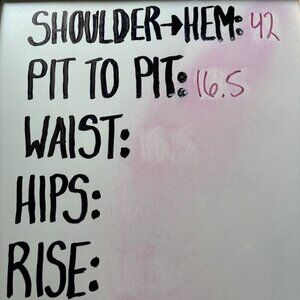 SHOULDER→HEM: 42
PIT TO PIT: 16.5
WAIST:
HIPS:
RISE: